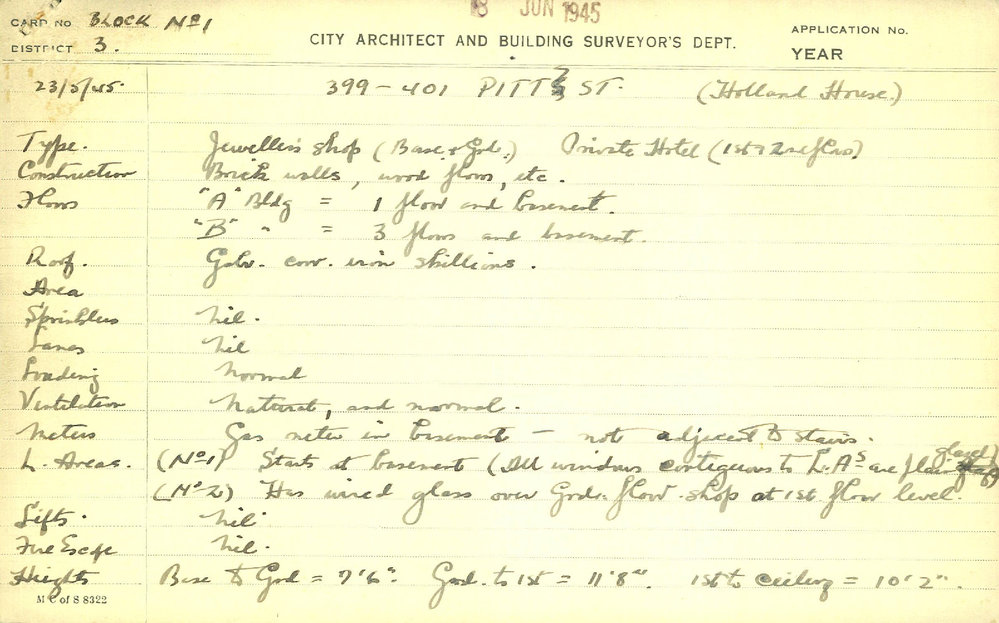 18 JUN 1945
CARD No BLOCK No 1
DISTRICT 3.
CITY ARCHITECT AND BUILDING SURVEYOR'S DEPT.
APPLICATION No.
YEAR
23/5/45. 399-401 PITT ST. (Holland House.)
Type. Jeweller's shop (Base. & Grd.) Private Hotel (1st & 2nd floors)
Construction Brick walls, wood floors, etc.
Floors "A" Bldg = 1 floor and basement.
"B" " = 3 floors and basement.
Roof. Galv. corr. iron skillions.
Area
Sprinklers Nil.
Lanes Nil
Loading Normal
Ventilation Natural, and normal.
Meters Gas meter in basement - not adjacent to stairs.
L. Areas. (No 1) Starts at basement (All windows contiguous to L.As are plain glazed)
(No 2) Has wired glass over Grd. floor shop at 1st floor level.
Lifts. Nil
Fire Escape Nil.
Heights Base to Grd = 7'6". Grd. to 1st = 11'8". 1st to ceiling = 10'2".
M C of S 8322